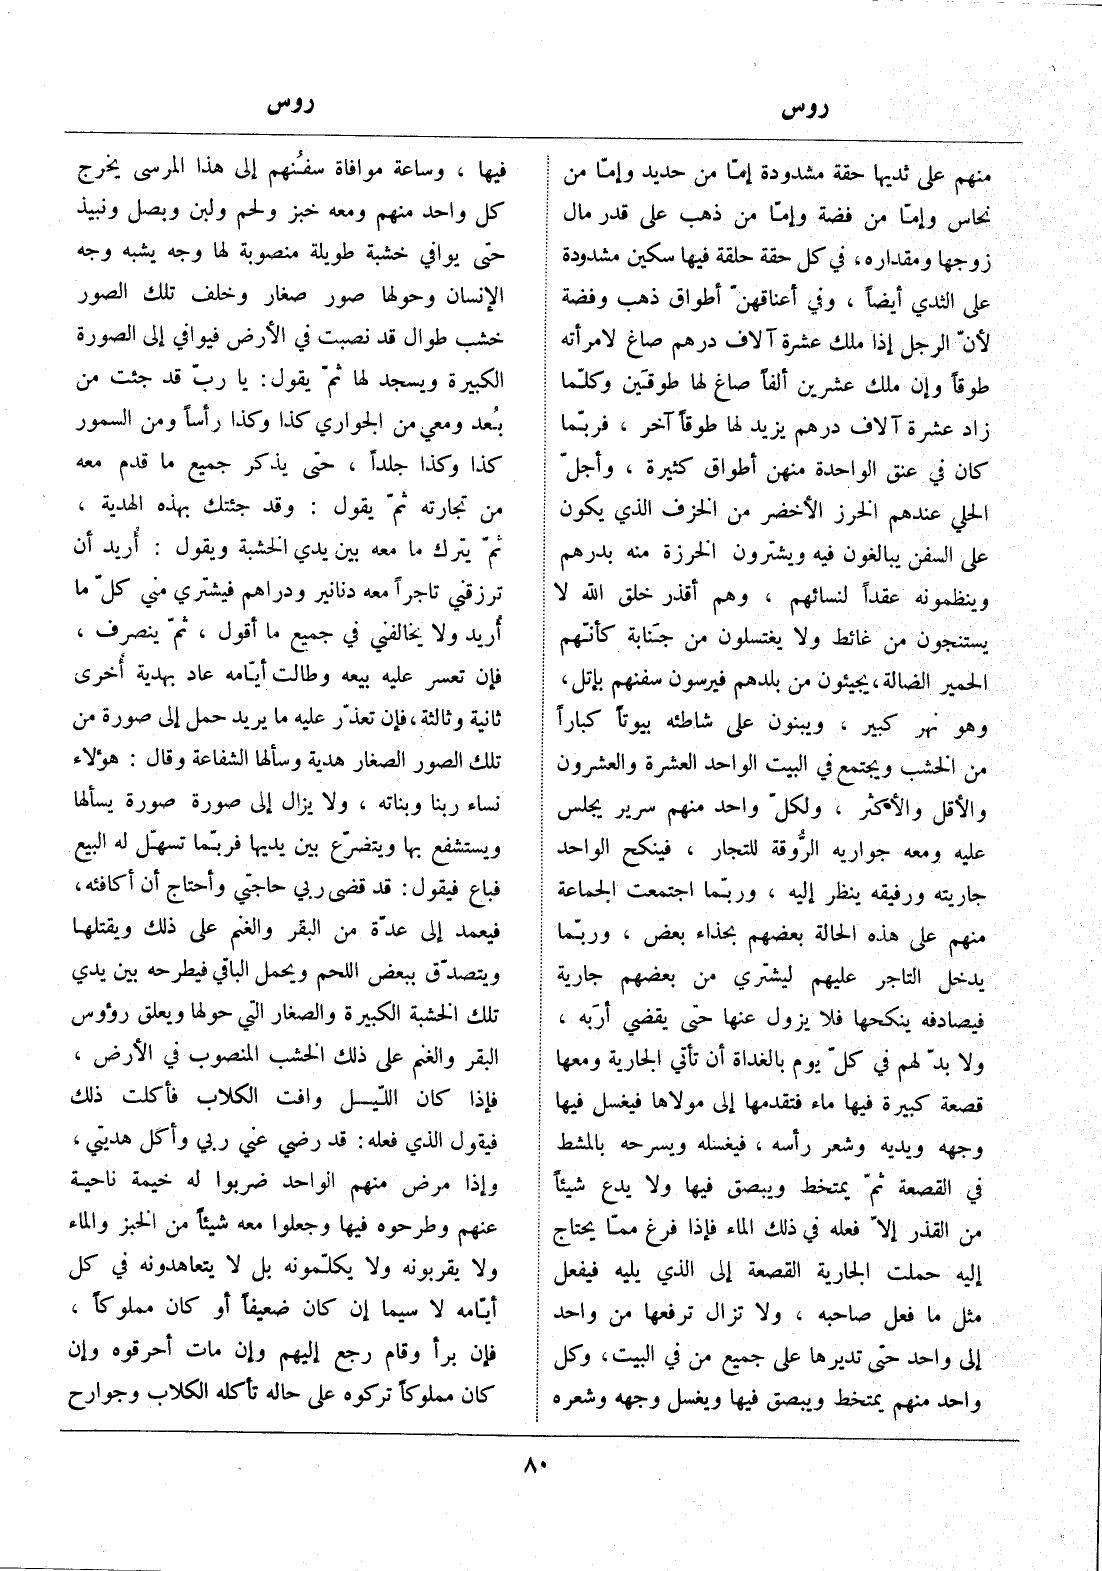 روس
روس
منهم على ثديها حقة مشدودة إمّا من حديد وإمّا من
نحاس وإمّا من فضة وإمّا من ذهب على قدر مال
زوجها ومقداره، في كل حقة حلقة فيها سكين مشدودة
على الثدي أيضاً ، وفي أعناقهنّ أطواق ذهب وفضة
لأنّ الرجل إذا ملك عشرة آلاف درهم صاغ لامرأته
طوقاً وإن ملك عشرين ألفاً صاغ لها طوقَين وكلّما
زاد عشرة آلاف درهم يزيد لها طوقاً آخر ، فربّما
كان في عنق الواحدة منهن أطواق كثيرة ، وأجلّ
الحلي عندهم الخرز الأخضر من الخزف الذي يكون
على السفن يبالغون فيه ويشترون الخرزة منه بدرهم
وينظمونه عقداً لنسائهم ، وهم أقذر خلق الله لا
يستنجون من غائط ولا يغتسلون من جَنابة كأنّهم
الحمير الضالة، يجيئون من بلدهم فيرسون سفنهم بإتل،
وهو نهر كبير ، ويبنون على شاطئه بيوتاً كباراً
من الخشب ويجتمع في البيت الواحد العشرة والعشرون
والأقل والأكثر ، ولكلّ واحد منهم سرير يجلس
عليه ومعه جواريه الرُّوقة للتجار ، فينكح الواحد
جاريته ورفيقه ينظر إليه ، وربّما اجتمعت الجماعة
منهم على هذه الحالة بعضهم بحذاء بعض ، وربّما
يدخل التاجر عليهم ليشتري من بعضهم جارية
فيصادفه ينكحها فلا يزول عنها حتّى يقضي أرَبه ،
ولا بدّ لهم في كلّ يوم بالغداة أن تأتي الجارية ومعها
قصعة كبيرة فيها ماء فتقدمها إلى مولاها فيغسل فيها
وجهه ويديه وشعر رأسه ، فيغسله ويسرحه بالمشط
في القصعة ثمّ يمتخط ويبصق فيها ولا يدع شيئاً
من القذر إلاّ فعله في ذلك الماء فإذا فرغ ممّا يحتاج
إليه حملت الجارية القصعة إلى الذي يليه فيفعل
مثل ما فعل صاحبه ، ولا تزال ترفعها من واحد
إلى واحد حتّى تديرها على جميع من في البيت، وكل
واحد منهم يمتخط ويبصق فيها ويغسل وجهه وشعره
فيها ، وساعة موافاة سفُنهم إلى هذا المرسى يخرج
كل واحد منهم ومعه خبز ولحم ولبن وبصل ونبيذ
حتّى يوافي خشبة طويلة منصوبة لها وجه يشبه وجه
الإنسان وحولها صور صغار وخلف تلك الصور
خشب طوال قد نصبت في الأرض فيوافي إلى الصورة
الكبيرة ويسجد لها ثمّ يقول: يا ربّ قد جئت من
بُعد ومعي من الجواري كذا وكذا رأساً ومن السمور
كذا وكذا جلداً ، حتّى يذكر جميع ما قدم معه
من تجارته ثمّ يقول : وقد جئتك بهذه الهدية ،
ثمّ يترك ما معه بين يدي الخشبة ويقول : أُريد أن
ترزقني تاجراً معه دنانير ودراهم فيشتري مني كلّ ما
أُريد ولا يخالفني في جميع ما أقول ، ثمّ ينصرف ،
فإن تعسر عليه بيعه وطالت أيّامه عاد بهدية أُخرى
ثانية وثالثة، فإن تعذّر عليه ما يريد حمل إلى صورة من
تلك الصور الصغار هدية وسألها الشفاعة وقال : هؤلاء
نساء ربنا وبناته ، ولا يزال إلى صورة صورة يسألها
ويستشفع بها ويتضرّع بين يديها فربّما تسهّل له البيع
فباع فيقول: قد قضى ربي حاجتي وأحتاج أن أكافئه،
فيعمد إلى عدّة من البقر والغنم على ذلك ويقتلها
ويتصدّق ببعض اللحم ويحمل الباقي فيطرحه بين يدي
تلك الخشبة الكبيرة والصغار التي حولها ويعلق رؤوس
البقر والغنم على ذلك الخشب المنصوب في الأرض ،
فإذا كان اللّيل وافت الكلاب فأكلت ذلك
فيقول الذي فعله: قد رضي عني ربي وأكل هديتي،
وإذا مرض منهم الواحد ضربوا له خيمة ناحية
عنهم وطرحوه فيها وجعلوا معه شيئاً من الخبز والماء
ولا يقربونه ولا يكلّمونه بل لا يتعاهدونه في كل
أيّامه لا سيما إن كان ضعيفاً أو كان مملوكاً ،
فإن برأ وقام رجع إليهم وإن مات أحرقوه وإن
كان مملوكاً تركوه على حاله تأكله الكلاب وجوارح
٨٠